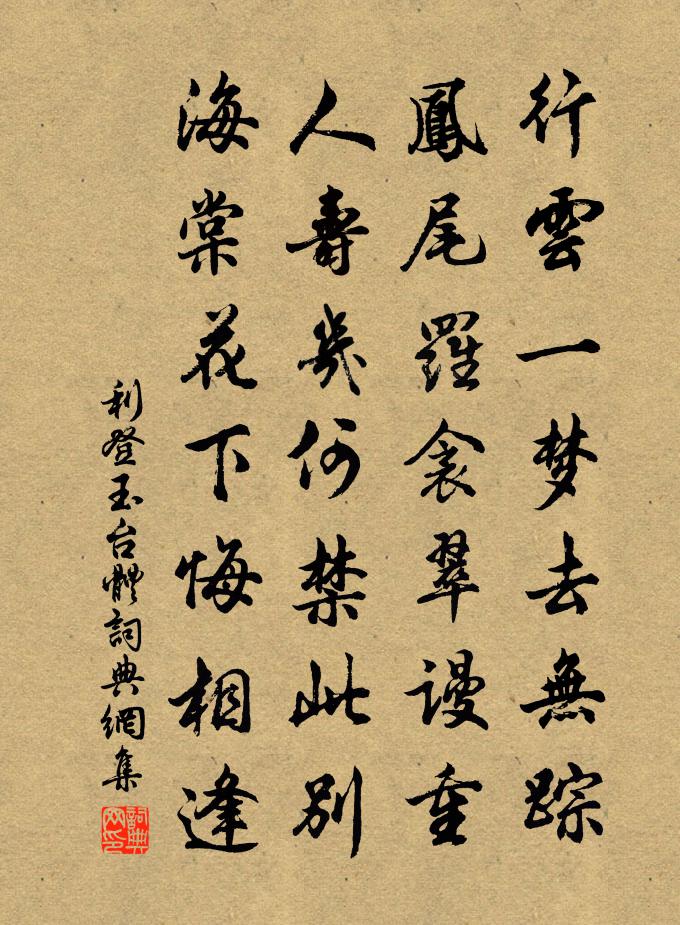 行雲一梦去無踪
鳳尾羅衾翠谩重
人壽幾何禁此別
海棠花下悔相逢
利登玉台體詞典網集
詞典網印